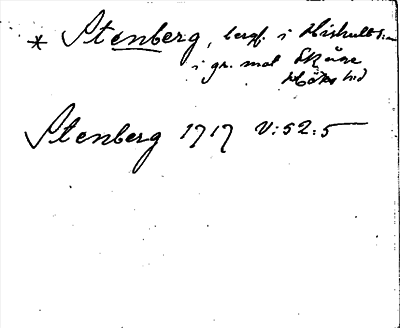 * Stenberg, bergf. i Hishult sn
i gr. mot Skåne
Höks hd
Stenberg 1717 V:52:5